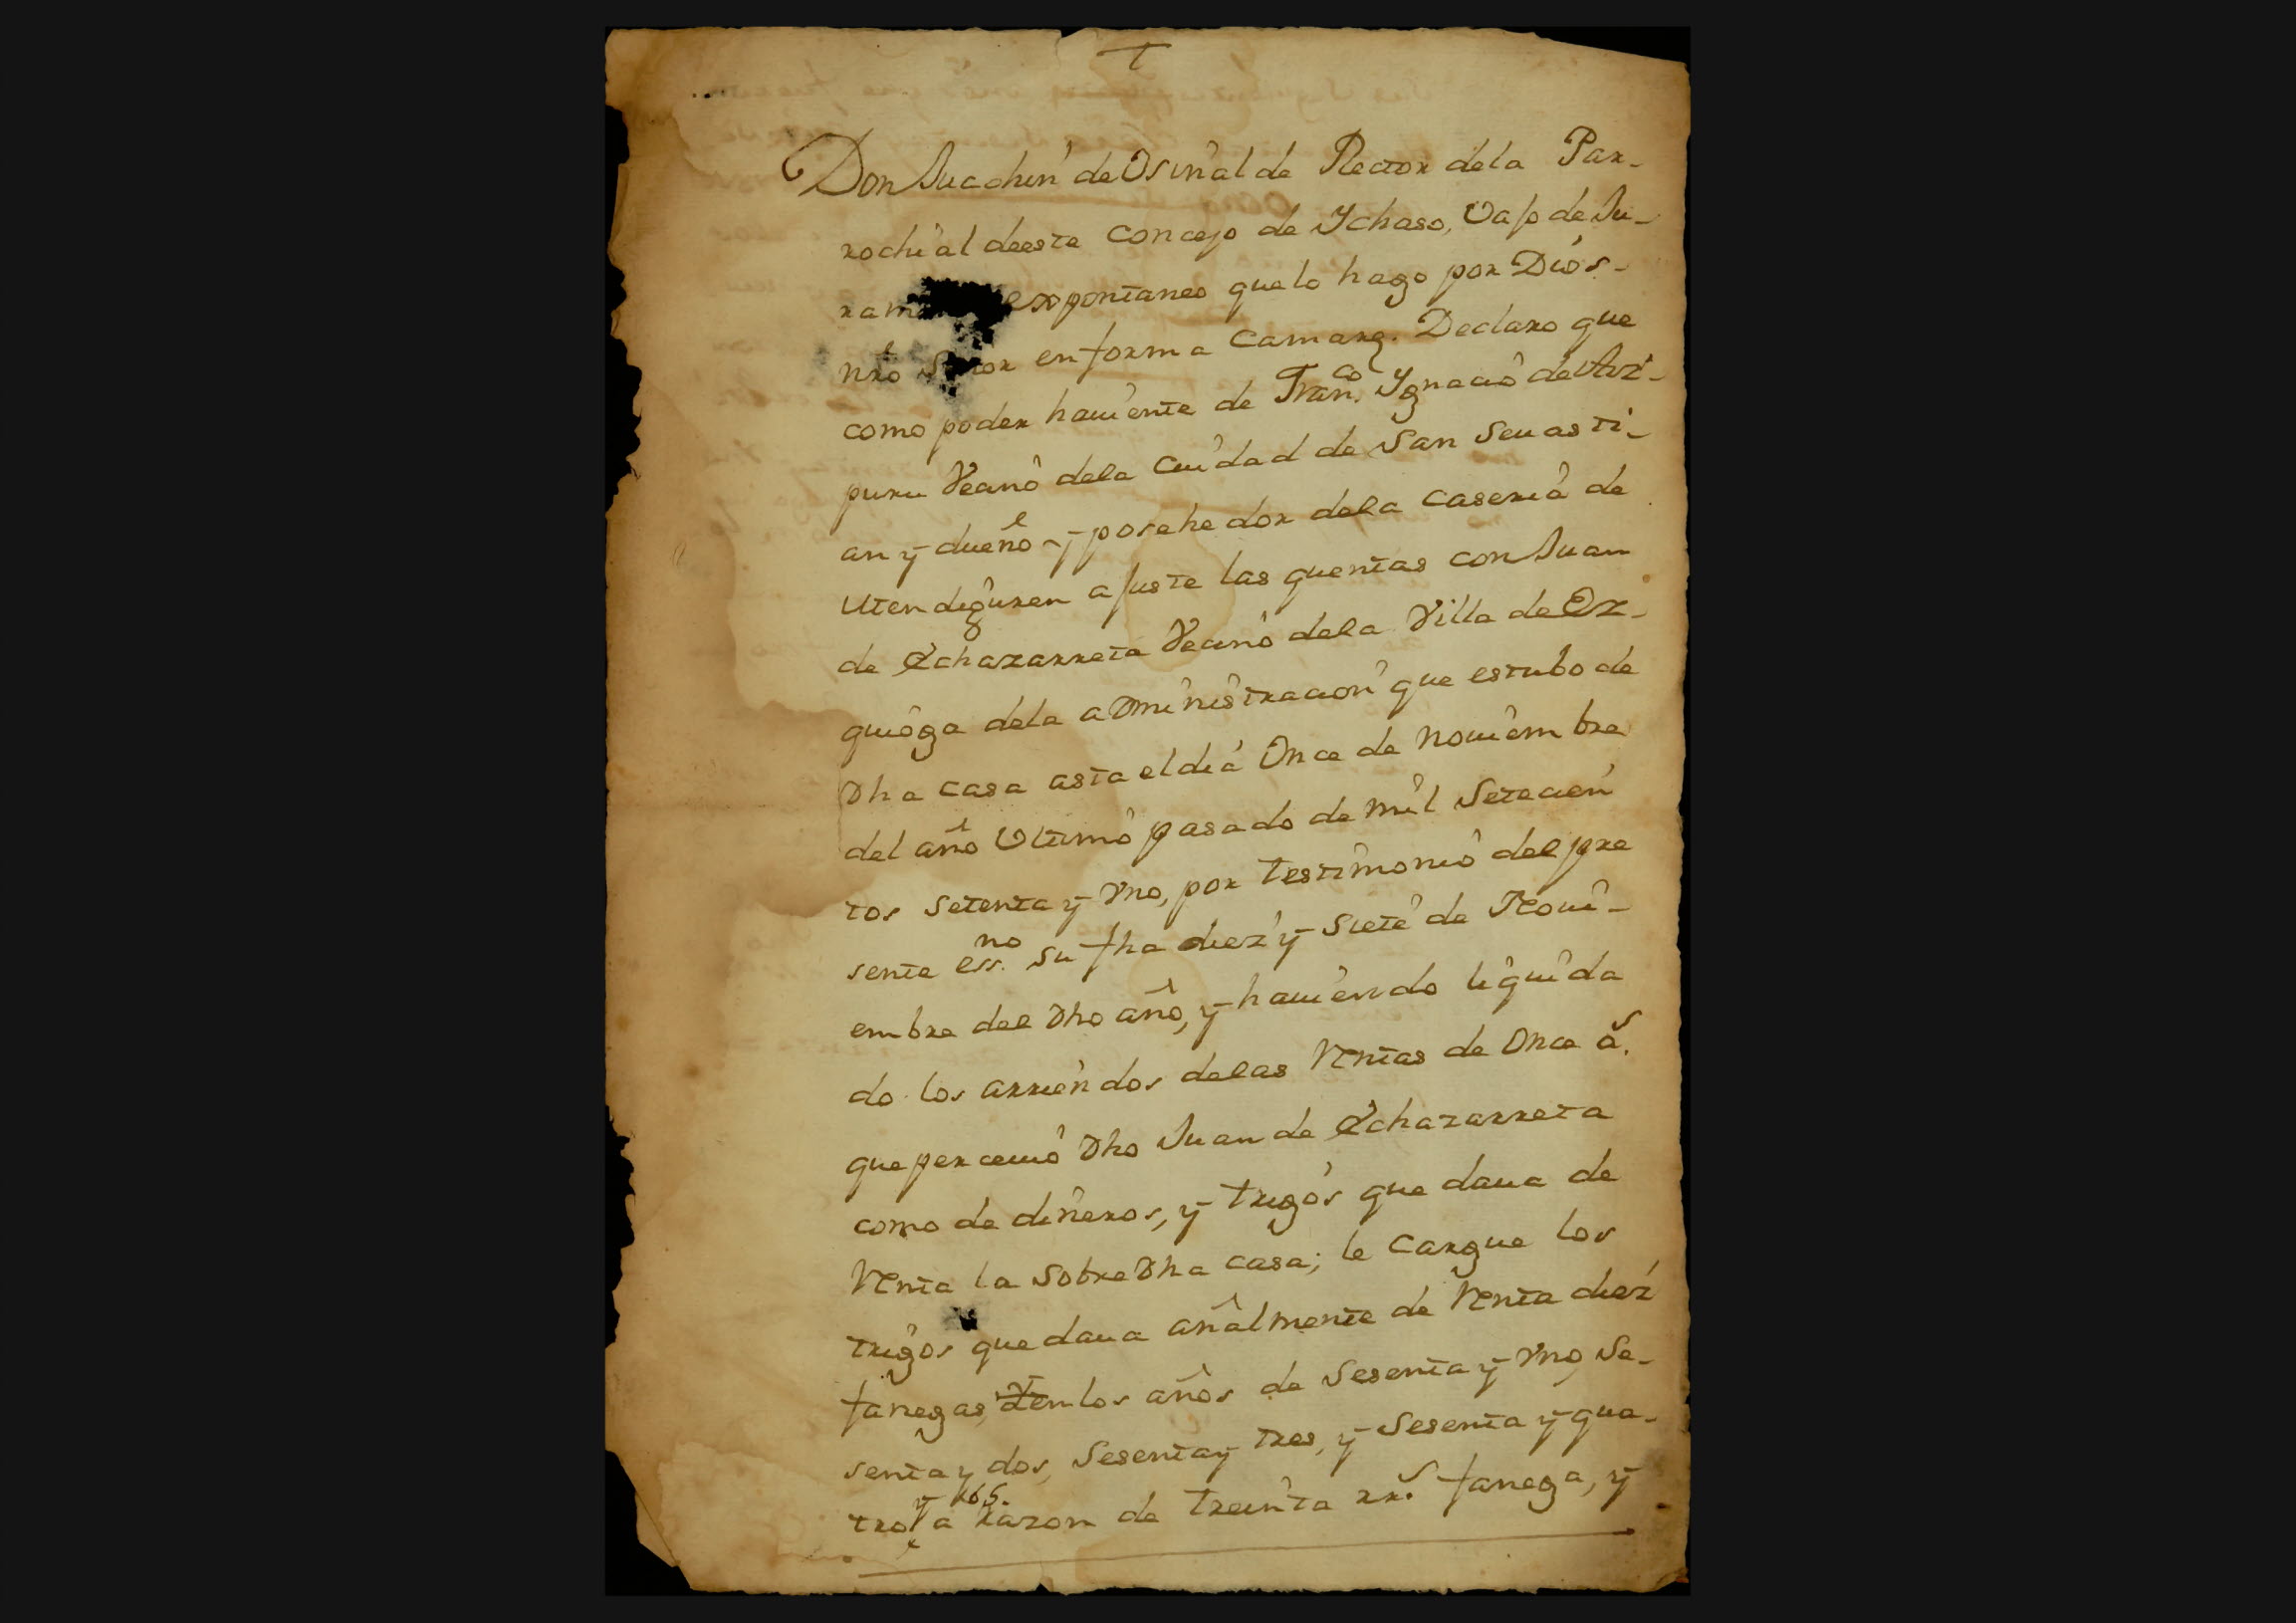 †
Don Juachin de Osinalde Rector dela Par-
rochial deeste concejo de Ychaso, Vajo de Ju-
ram expontaneo quelo hago por Dios
nro Señor en forma Camarª. Declaro que
como poder haviente de Franco. Ygnacio de Ariz-
puru Vecino dela Ciudad de San Sevasti-
an y dueño y posehedor dela caseria de
Utendiguren ajuste las quentas con Juan
de Echazarreta Vecino dela Villa de Ez-
quioga dela administracion que estubo de
dha casa asta el dia Once de Noviembre
del año Ultimo pasado de mil Setecien
tos setenta y Vno, por testimonio del pre
sente essno. su fha diez y siete de Novi-
embre del dho año, y haviendo liquida
do los arriendos delas Rentas de Once as.
que percevio dho Juan de Echazarreta
como de dineros, y trigos que dava de
Renta la Sobredha casa; le Cargue los
trigos que dava añalmente de Renta diez
fanegas, en los años de Sesenta y Vno, Se-
senta y dos, Sesenta y tres, y Sesenta y qua-
tro, y 65. a razon de treinta rrs. fanega, y